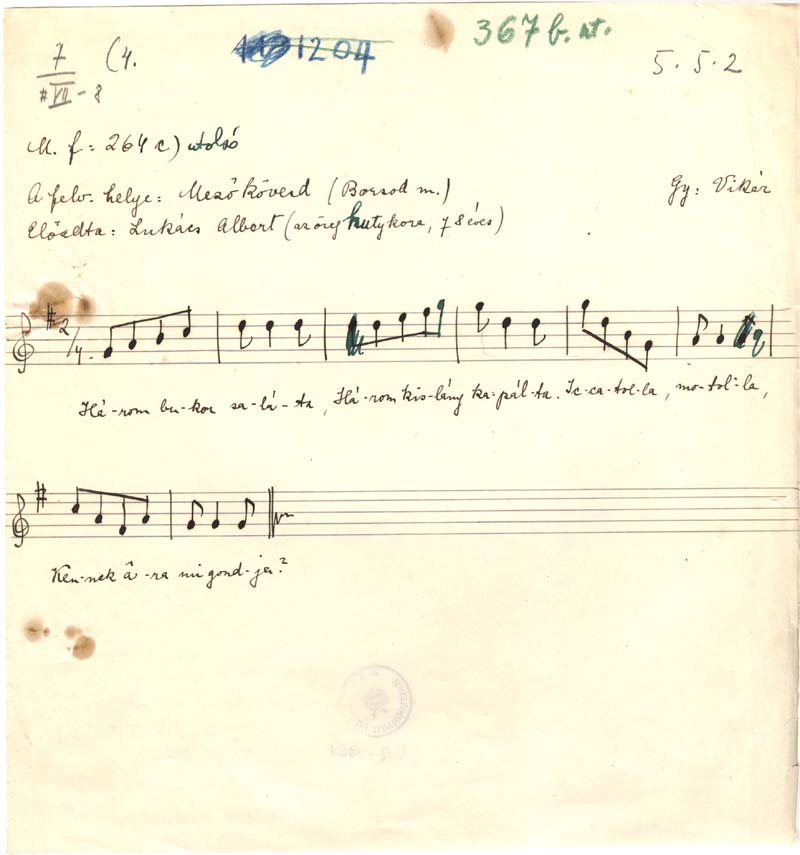 7 (4.
#VII-8
1204
367 b. st.
5.5.2
M. f: 264 c) utolsó
A felv. helye: Mezőkövesd (Borsod m.)
Gy: Vikár
Előadta: Lukács Albert (az öreg kutykora, 78 éves)
2/4.
Há-rom bu-kor sa-lá-ta, Há-rom kis-lány ka-pál-ta. Ic-ca-tol-la, mo-tol-la,
Ken-nek á-ra mi gond-ja?